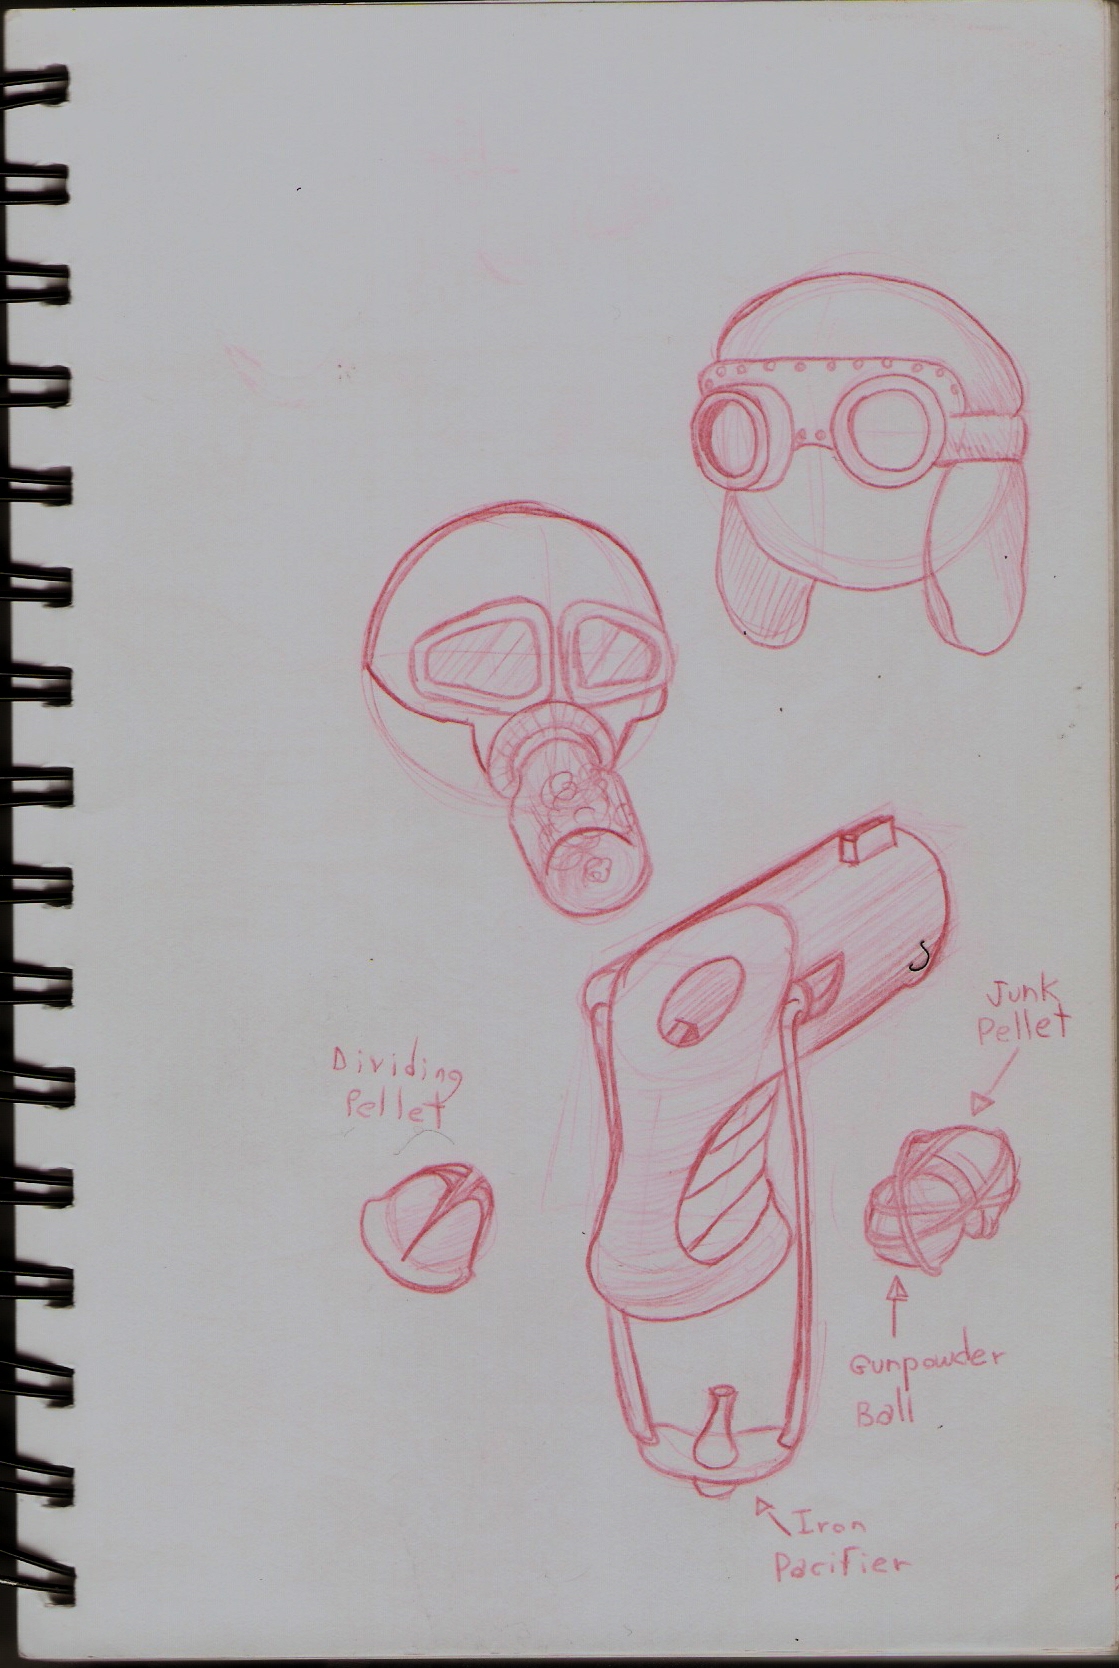 Junk
Pellet
Dividing
Pellet
Gunpowder
Ball
Iron
Pacifier